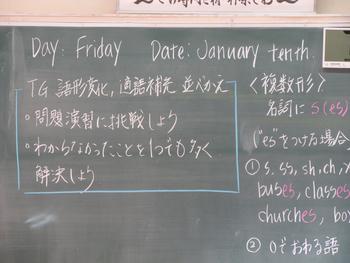 Day: Friday Date: January tenth.
TG 語形変化, 適語補充 並べかえ
○問題演習に挑戦しよう
○わからなかったことを1つでも多く
解決しよう
<複数形>
名詞に s(es)
("es"をつける場合
① s, ss, sh, ch, x
buses, classes
churches, bo
② oでおわる語